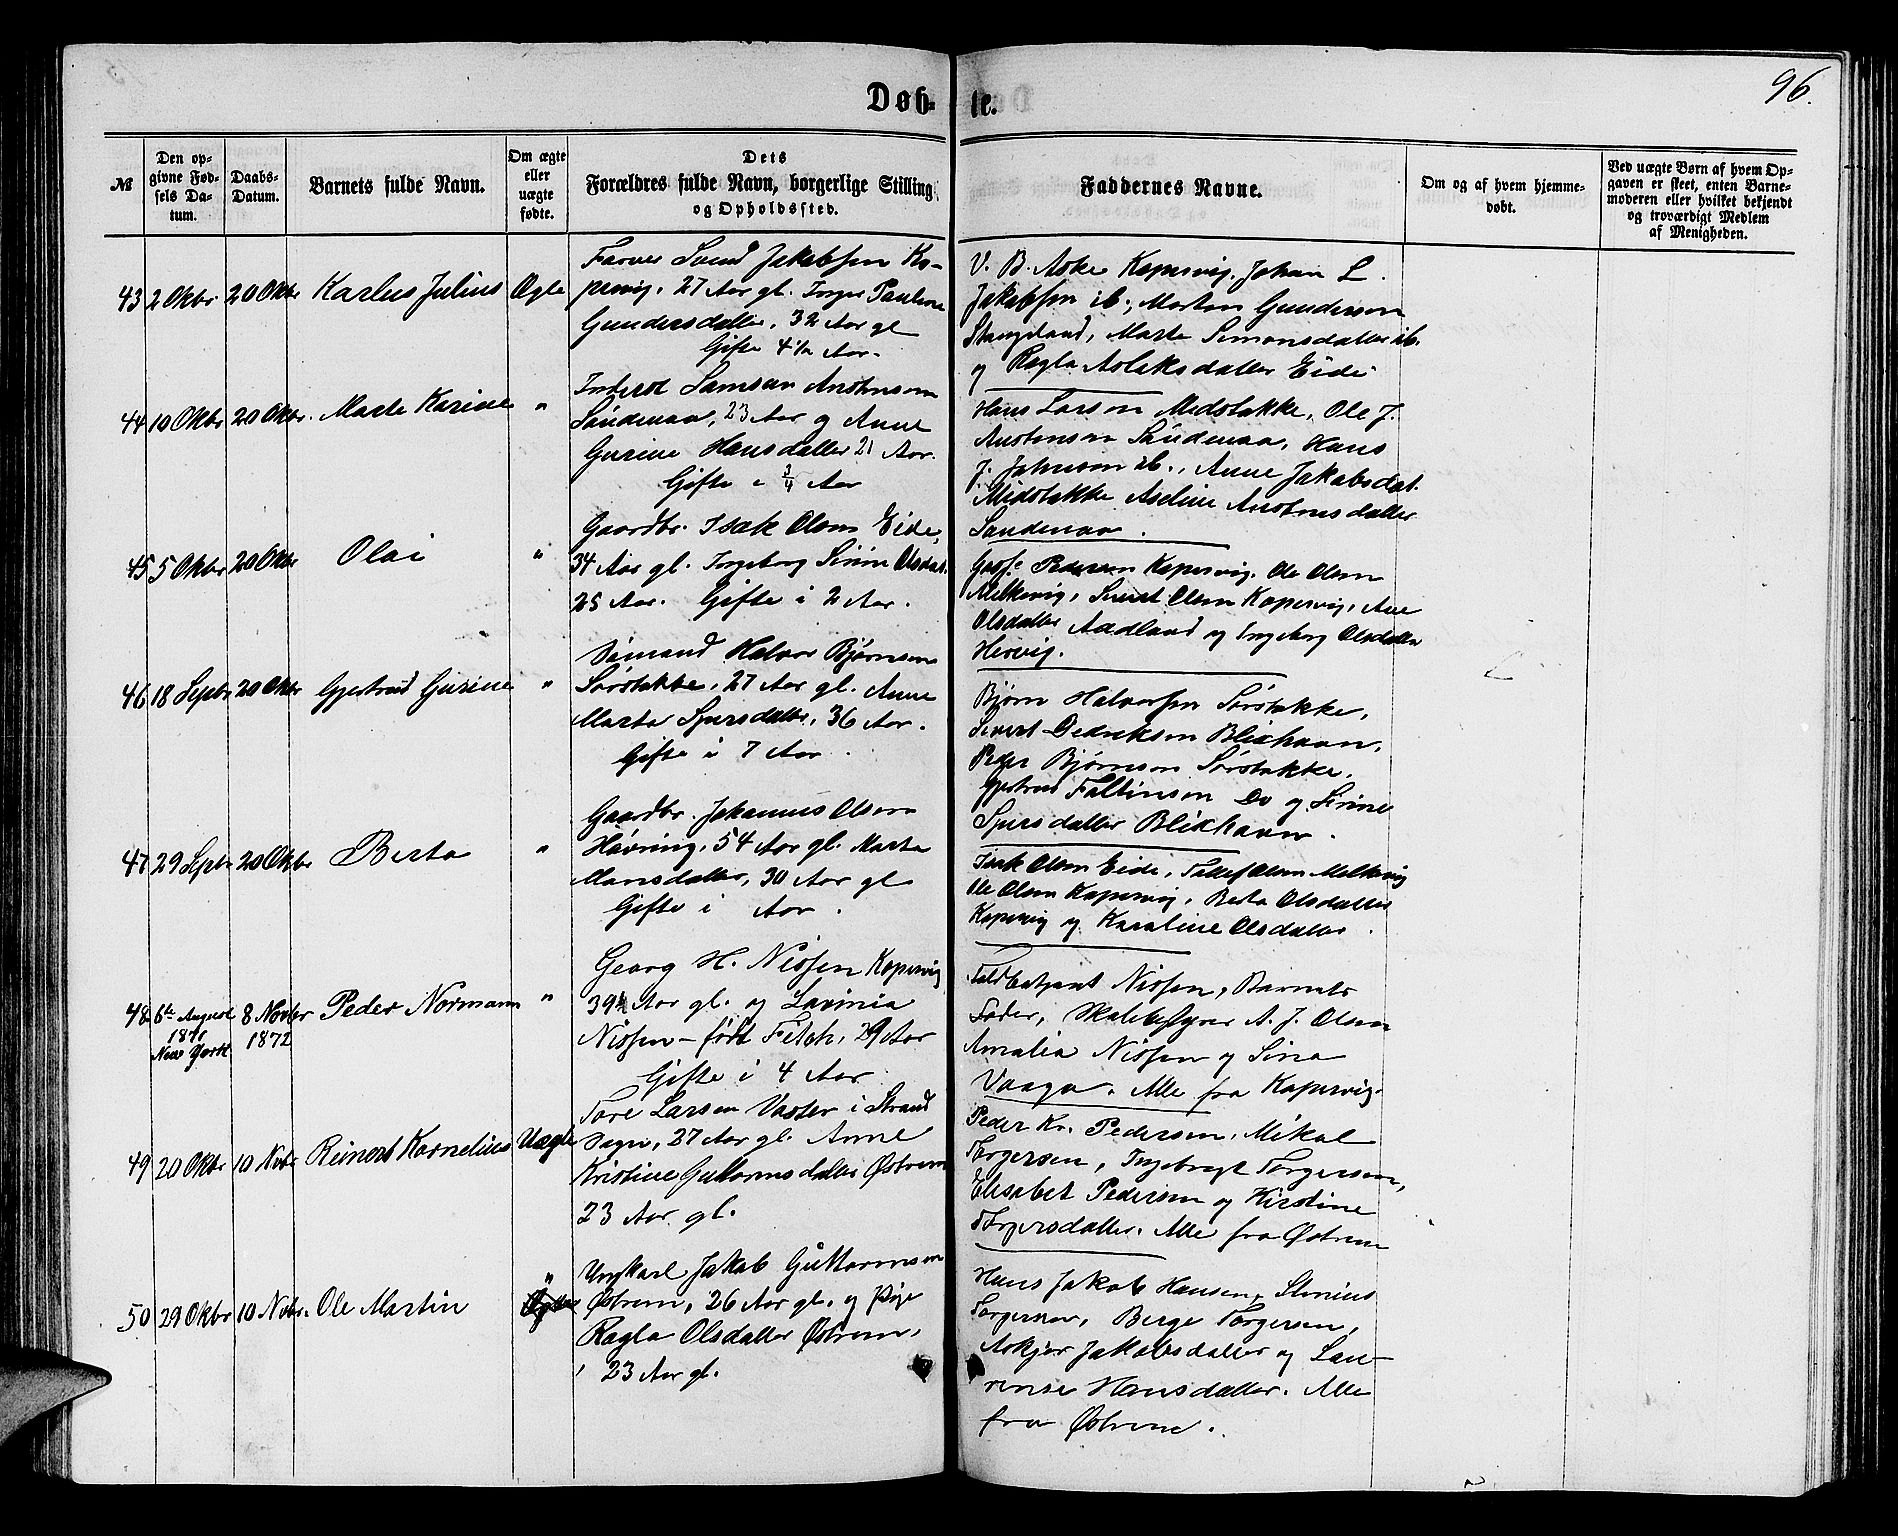 Døb-
te.
96.
№
Den op-
givne Fød-
sels Da-
tum.
Daabs-
Datum.
Barnets fulde Navn.
Om ægte
eller
uægte
fødte.
Dets
Forældres fulde Navn, borgerlige Stilling
og Opholdssted.
Faddernes Navne.
Om og af hvem hjemme-
døbt.
Ved uægte Børn af hvem Op-
gaven er skeet, enten Barne-
moderen eller hvilket bekjendt
og troværdigt Medlem
af Menigheden.
43 2 Oktbr 20 Oktbr Karlus Julius Ægte
Farver Svend Jakobsen Ko-
pervig, 27 Aar gl. Inger Pauline
Gundersdatter, 32 Aar gl
Gifte 4½ Aar.
V. B. Aske Kopervig, Johan L.
Jakobsen ib., Morten Gunderson
Stangeland, Marte Simonsdatter ib.
og Ragla Aslaksdatter Eide
44 10 Oktbr 20 Oktbr. Marte Karine "
Inderst Samson Anstenson
Søndenaa, 23 Aar og Anne
Gurine Hansdatter 21 Aar.
Gifte i 3/4 Aar
Hans Larson Midstokke, Ole J.
Anstenson Søndenaa, Hans
J. Johnson ib., Anne Jakobsdat.
Midstokke Aseline Anstensdatter
Søndenaa.
45 5 Oktbr 20 Oktbr Olai "
Gaardbr. Isak Olsen Eide,
34 Aar gl. Ingeborg Sirine Olsdat.
25 Aar. Gifte i 2 Aar.
Pedersen Kopervig, Ole Olsen
Melkevig, Olsen Kopervig, Ane
Olsdatter Aadland og Ingeborg Olsdatter
Hervig.
46 18 Septbr 20 Oktbr Gjertrud Gurine "
Sømand Halvor Bjørnsen
Sørstokke, 27 Aar gl. Anne
Marta Sjursdatter, 36 Aar.
Gifte i 7 Aar.
Bjørn Halvorsen Sørstokke,
Sivert Dedrikson Blikhavn,
Peder Bjørnson Sørstokke.
Gjertrud Faltinson Do og Sirine
Sjursdatter Blikhavn.
47 29 Septbr 20 Oktbr Berta "
Gaardbr. Johannes Olsen
Høvring, 54 Aar gl. Marta
Monsdatter, 30 Aar gl
Gifte i Aar.
Isak Olsen Eide, Tollef Olsen Melkevig
Ole Olsen Kopervig, Berta Olsdatter
Kopervig og Karoline Olsdatter.
48 6te August 8 Novbr Peder Normann "
1871 1872
New York
Georg H. Nissen Kopervig
39 Aar gl. og Lavinia
Nissen - født Fitch, 29 Aar
Gifte i 4 Aar
Nissen, Barnets
Fader, Skolebestyrer A. J. Olsen
Amalia Nissen og Sina
Vaage. Alle fra Kopervig.
49 20 Oktbr 10 Novbr Reinert Kornelius Uægte
Tore Larsen Vaster i Strand
Sogn, 27 Aar gl. Anne
Kristine Guttormsdatter Østrem
23 Aar gl.
Peder Kr. Pedersen, Mikal
Torgersen, Ingebregt Torgersen,
Elisabet Pedersen og Kirstine
Torgersdatter. Alle fra Østrem
50 29 Oktbr 10 Novbr. Ole Martin "
Ungkarl Jakob Guttormsen
Østrem, 26 Aar gl. og Pige
Ragla Olsdatter Østrem,
23 Aar gl.
Hans Jakob Hansen, Stenius
Torgersen, Berge Torgersen,
Askjer Jakobsdatter og Lau-
rense Hansdatter. Alle
fra Østrem.